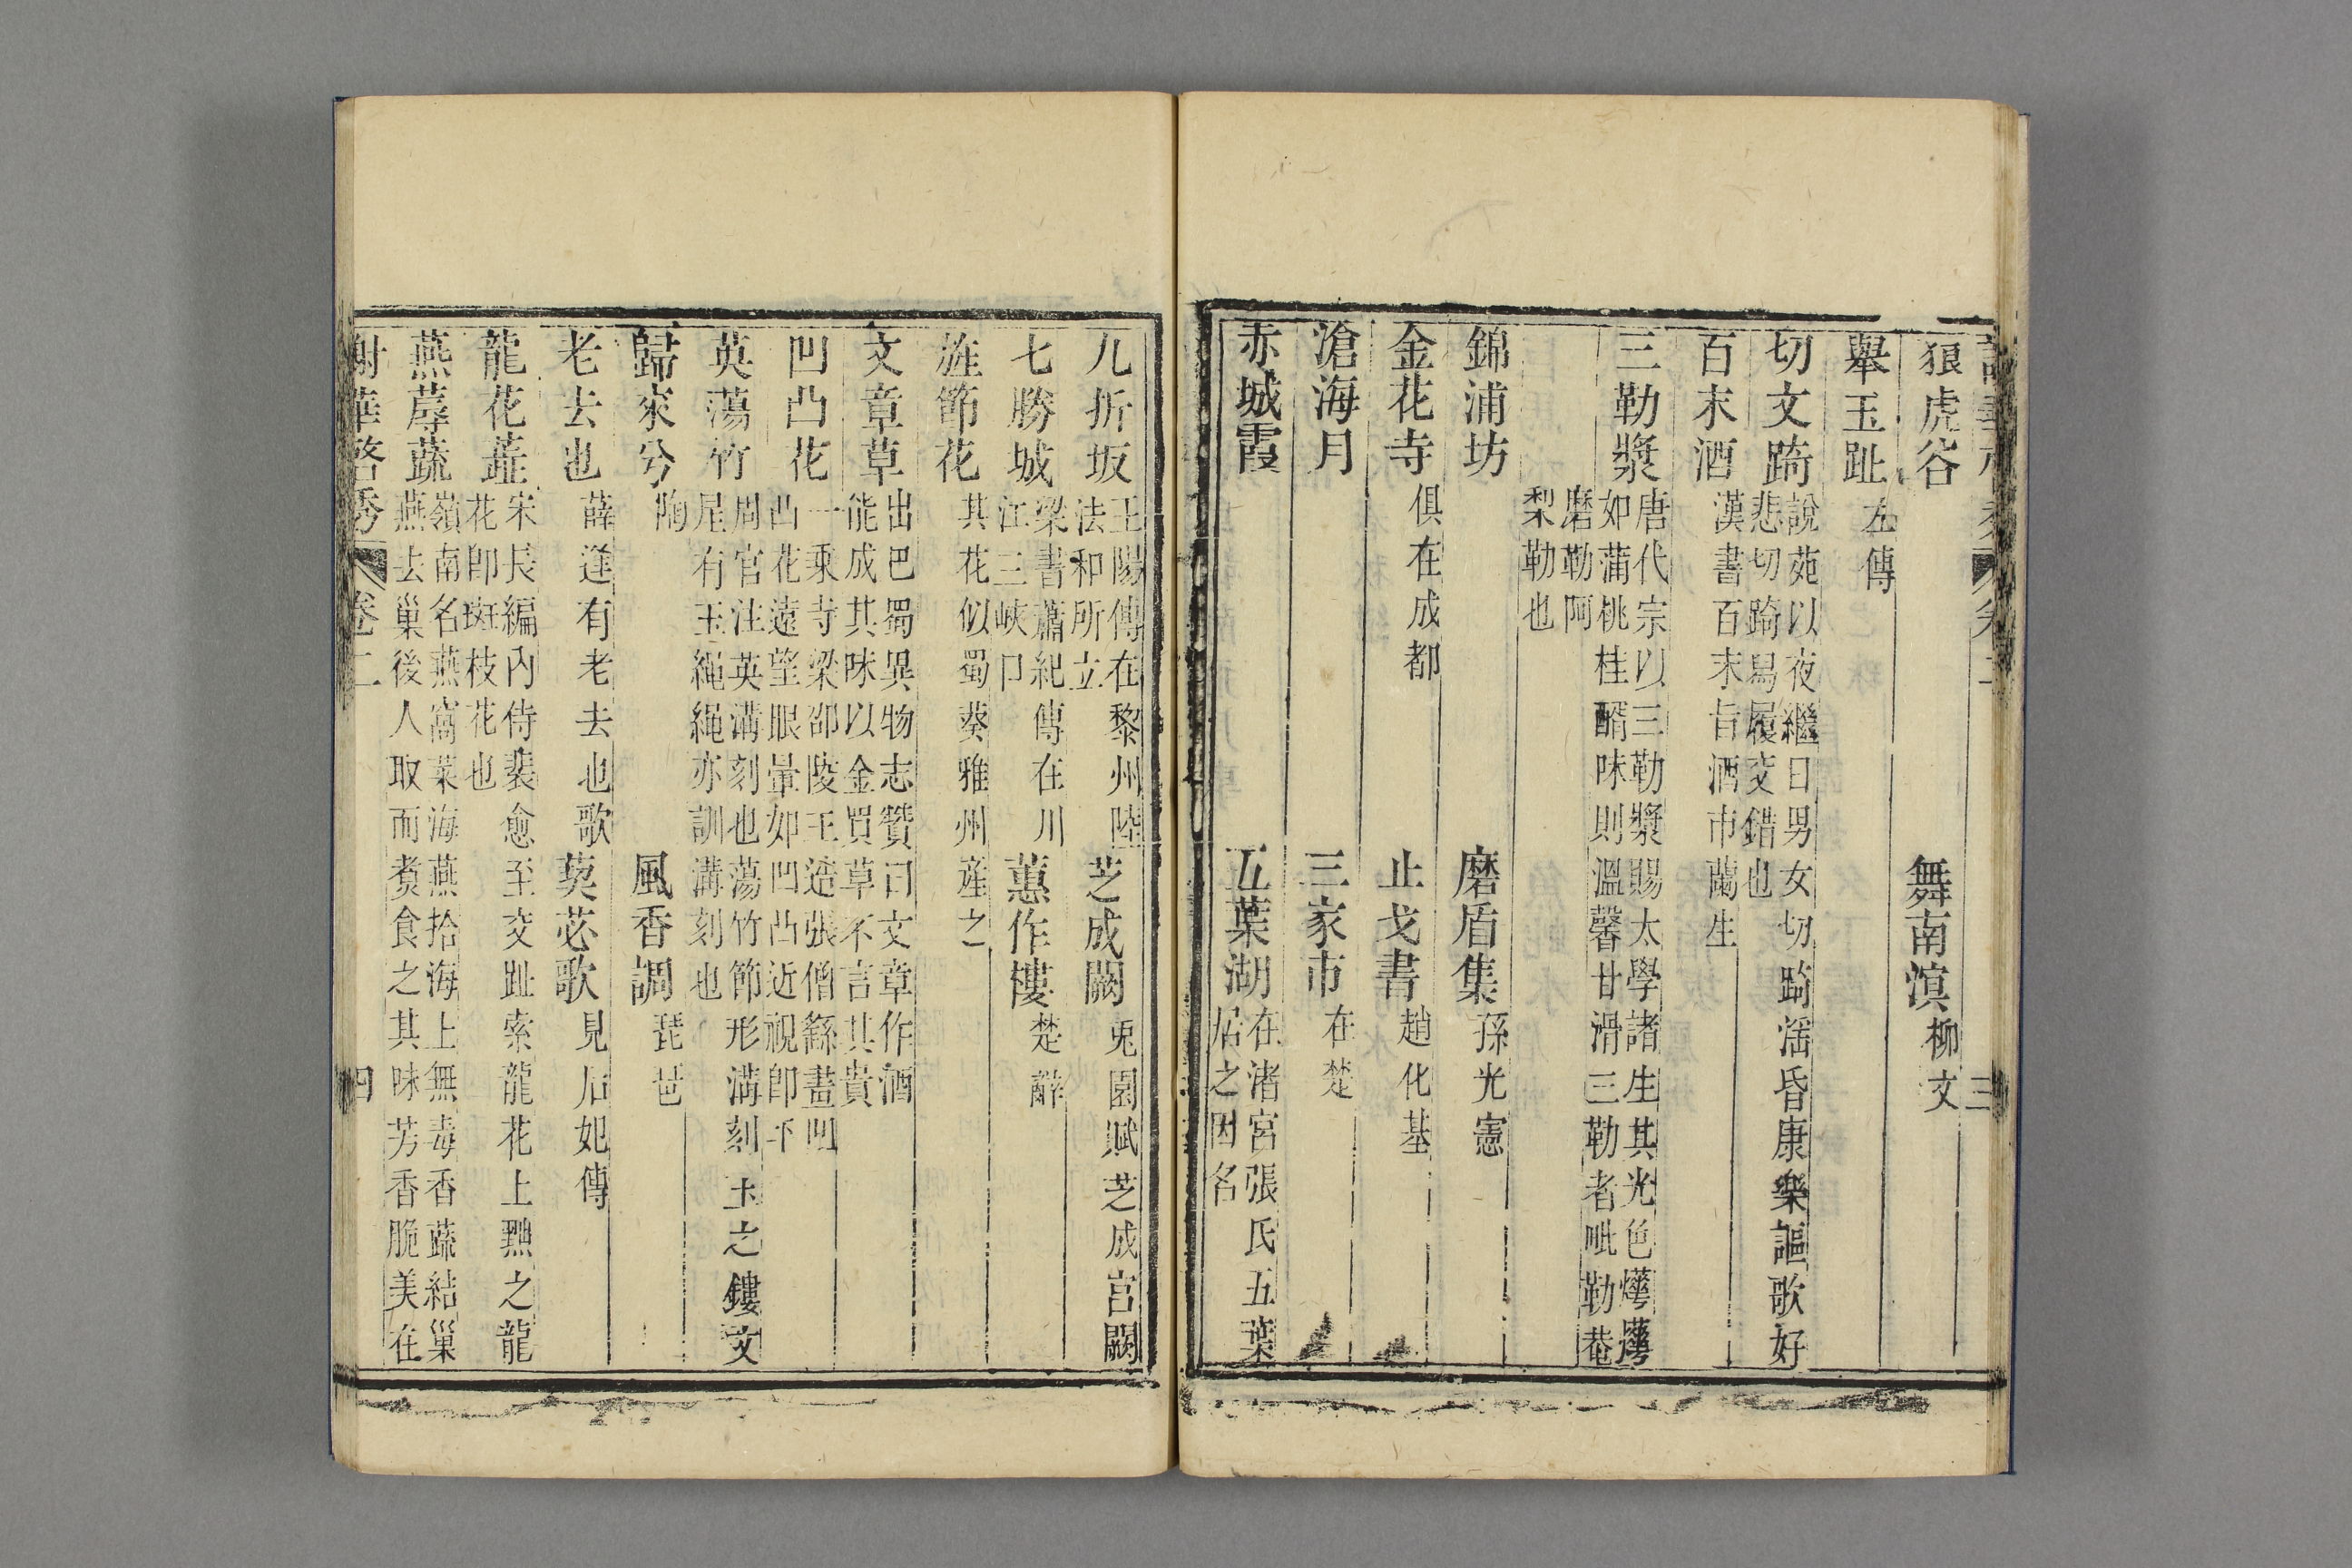 狼虎谷　舞南溟柳文
舉玉趾左傳
切文踦說苑以夜繼日男女切踦淫昏康樂謳歌好
悲切踦舄履交錯也
百末酒漢書百末旨酒布蘭生
三勒漿唐代宗以三勒漿賜太學諸生其光色爗爗
如蒲桃桂醑味則溫馨甘滑三勒者毗勒菴
磨勒阿
梨勒也
錦浦坊　磨盾集孫光憲
金花寺俱在成都　止戈書趙化基
滄海月　三家市在楚
赤城霞　五葉湖在渚宮張氏五葉
居之因名
九折坂王陽傳在黎州陸
法和所立　芝成闕兎園賦芝成宮闕
七勝城梁書蕭紀傳在川
江三峽口　蕙作樓楚辭
旌節花其花似蜀葵雅州產之
文章草出巴蜀異物志贊曰文章作酒
能成其味以金買草不言其貴
凹凸花一乘寺梁邵陵王造張僧繇畫凹
凸花遠望眼暈如凹凸近視卽平
英蕩竹周官注英溝刻也蕩竹節形溝刻玉之鏤文
尾有玉繩繩亦訓溝刻也
歸來兮陶　風香調琵琶
老去也薛逢有老去也歌　苾歌見后妃傳
龍花蘂宋長編內侍裴愈至交趾索龍花上㸃之龍
花卽斑枝花也
燕蓐蔬嶺南名燕窩菜海燕拾海上無毒香蔬結巢
燕去巢後人取而煑食之其味芳香脆美在
謝華啓秀　卷二　四